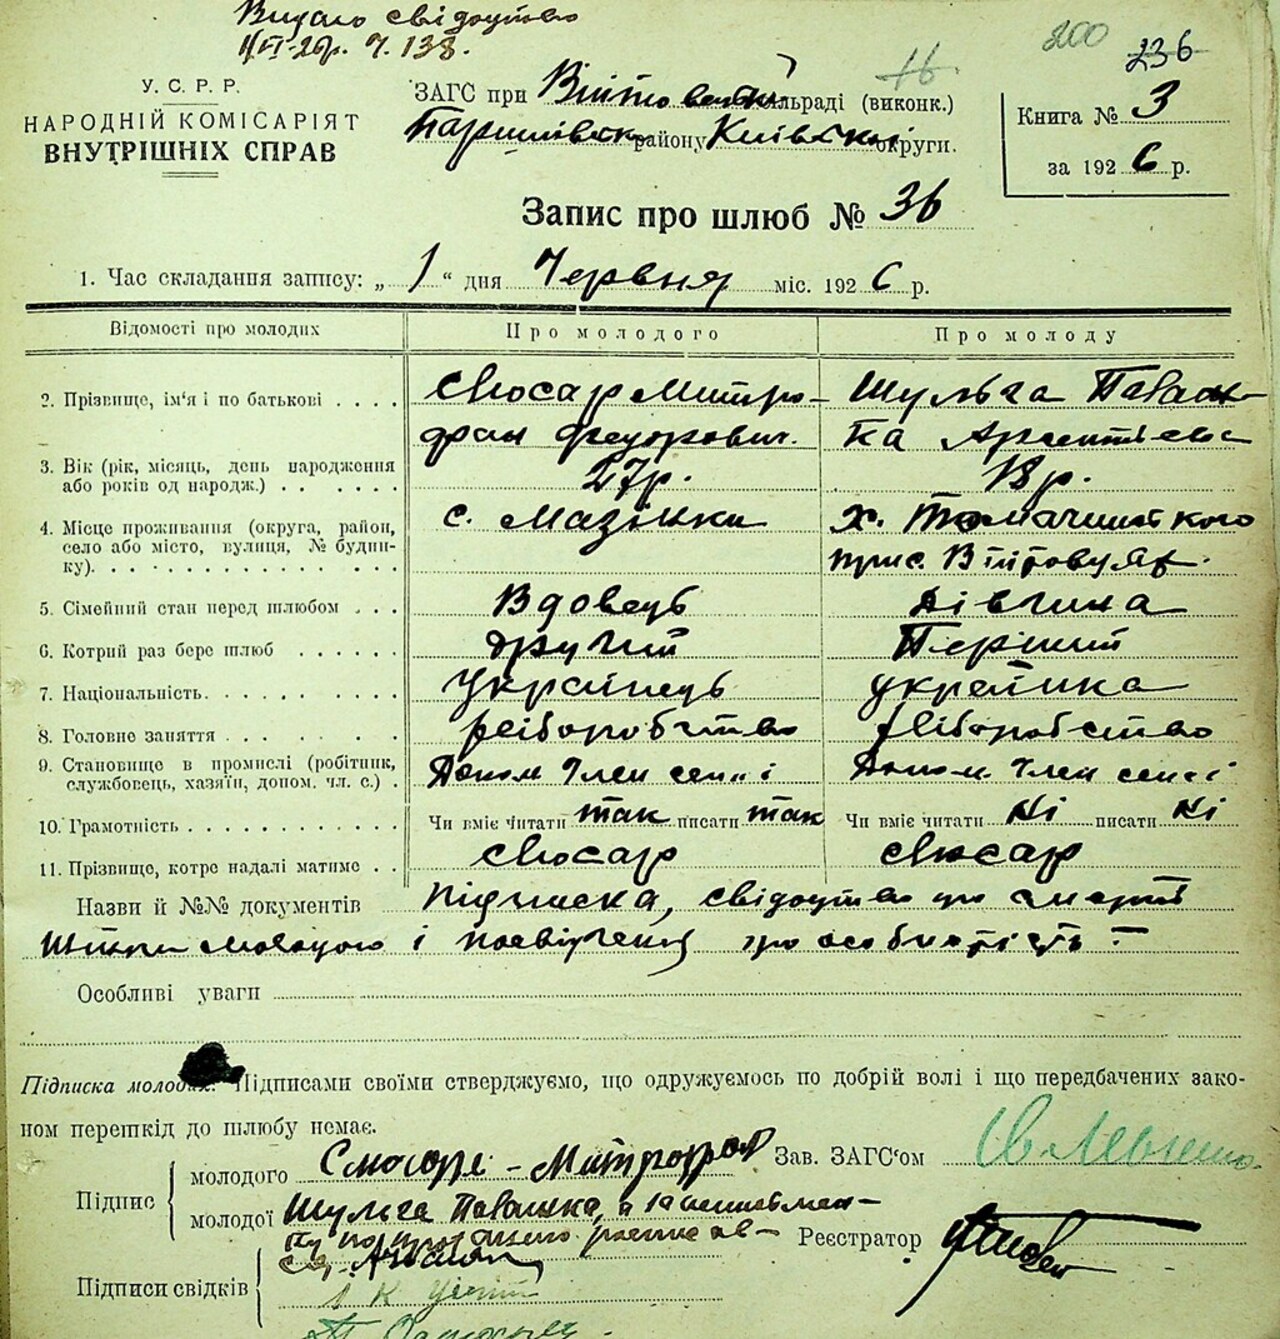 Видано свідоцтво
1/VI-26р. Ч. 138.
200 236
16.
У. С. Р. Р.
НАРОДНІЙ КОМІСАРІЯТ
ВНУТРІШНІХ СПРАВ
ЗАГС при Війтовській сільраді (виконк.)
району Київської округи.
Книга № 3
за 1926 р.
Запис про шлюб № 36
1. Час складання запису: „ 1 “ дня Червня міс. 1926 р.
Відомості про молодих Про молодого Про молоду
2. Прізвище, ім'я і по батькові . . . . Слюсар Митро- Шульга Павлш-
фан Федорович. ка Арсентієва
3. Вік (рік, місяць, день народження
або років од народж.) . . . . . . 27р. 18 р.
4. Місце проживання (округа, район, с. Мазінки х.
село або місто, вулиця, № будин-
ку). . . . . . . . . . . . . . .
5. Сімейний стан перед шлюбом . . . Вдовець Дівчина
6. Котрий раз бере шлюб . . . . . . другий Перший
7. Національність. . . . . . . . . . Українець українка
8. Головне заняття . . . . . . . . хліборобство хліборобство
9. Становище в промислі (робітник,
службовець, хазяїн, допом. чл. с.) . Допом. Член семьї Допом. Член семьї
10. Грамотність . . . . . . . . . . . . Чи вміє читати так писати так Чи вміє читати Ні писати Ні
11. Прізвище, котре надалі матиме . . Слюсар Слюсар
Назви й №№ документів Підписка, свідоцтво про смерть
жінки молодого і посвідчення про особистість -
Особливі уваги
Підписка молодих: Підписами своїми стверджуємо, що одружуємось по добрій волі і що передбачених зако-
ном перешкід до шлюбу немає.
Підпис
молодого Слюсарь - Митрофан
Зав. ЗАГС'ом
молодої Шульга Павлшка, а за неписьмен-
розписав-
ся
Реєстратор
Підписи свідків